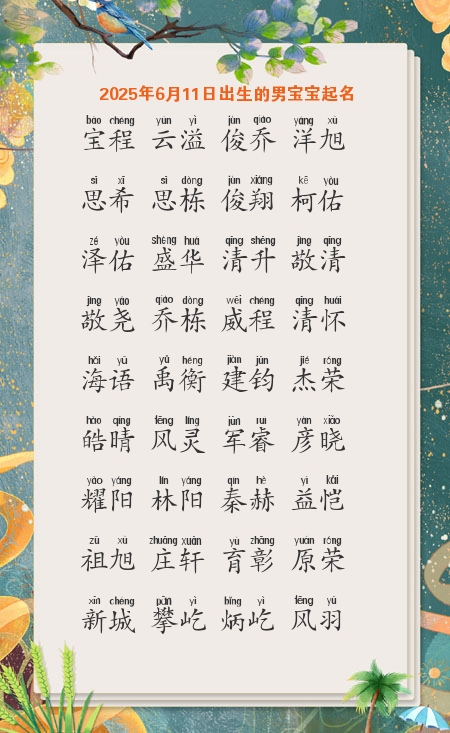 2025年6月11日出生的男宝宝起名
bǎo chéng yún yì jùn qiáo yáng xù
宝程 云溢 俊乔 洋旭
sī xī sī dòng jùn xiáng kē yòu
思希 思栋 俊翔 柯佑
zé yòu shèng huá qīng shēng jìng qīng
泽佑 盛华 清升 敬清
jìng yáo qiáo dòng wēi chéng qīng huái
敬尧 乔栋 威程 清怀
hǎi yǔ yǔ héng jiàn jūn jié róng
海语 禹衡 建钧 杰荣
hào qíng fēng líng jūn ruì yàn xiǎo
皓晴 风灵 军睿 彦晓
yào yáng lín yáng qín hè yì kǎi
耀阳 林阳 秦赫 益恺
zǔ xù zhuāng xuān yù zhāng yuán róng
祖旭 庄轩 育彰 原荣
xīn chéng pān yì bǐng yì fēng yǔ
新城 攀屹 炳屹 风羽